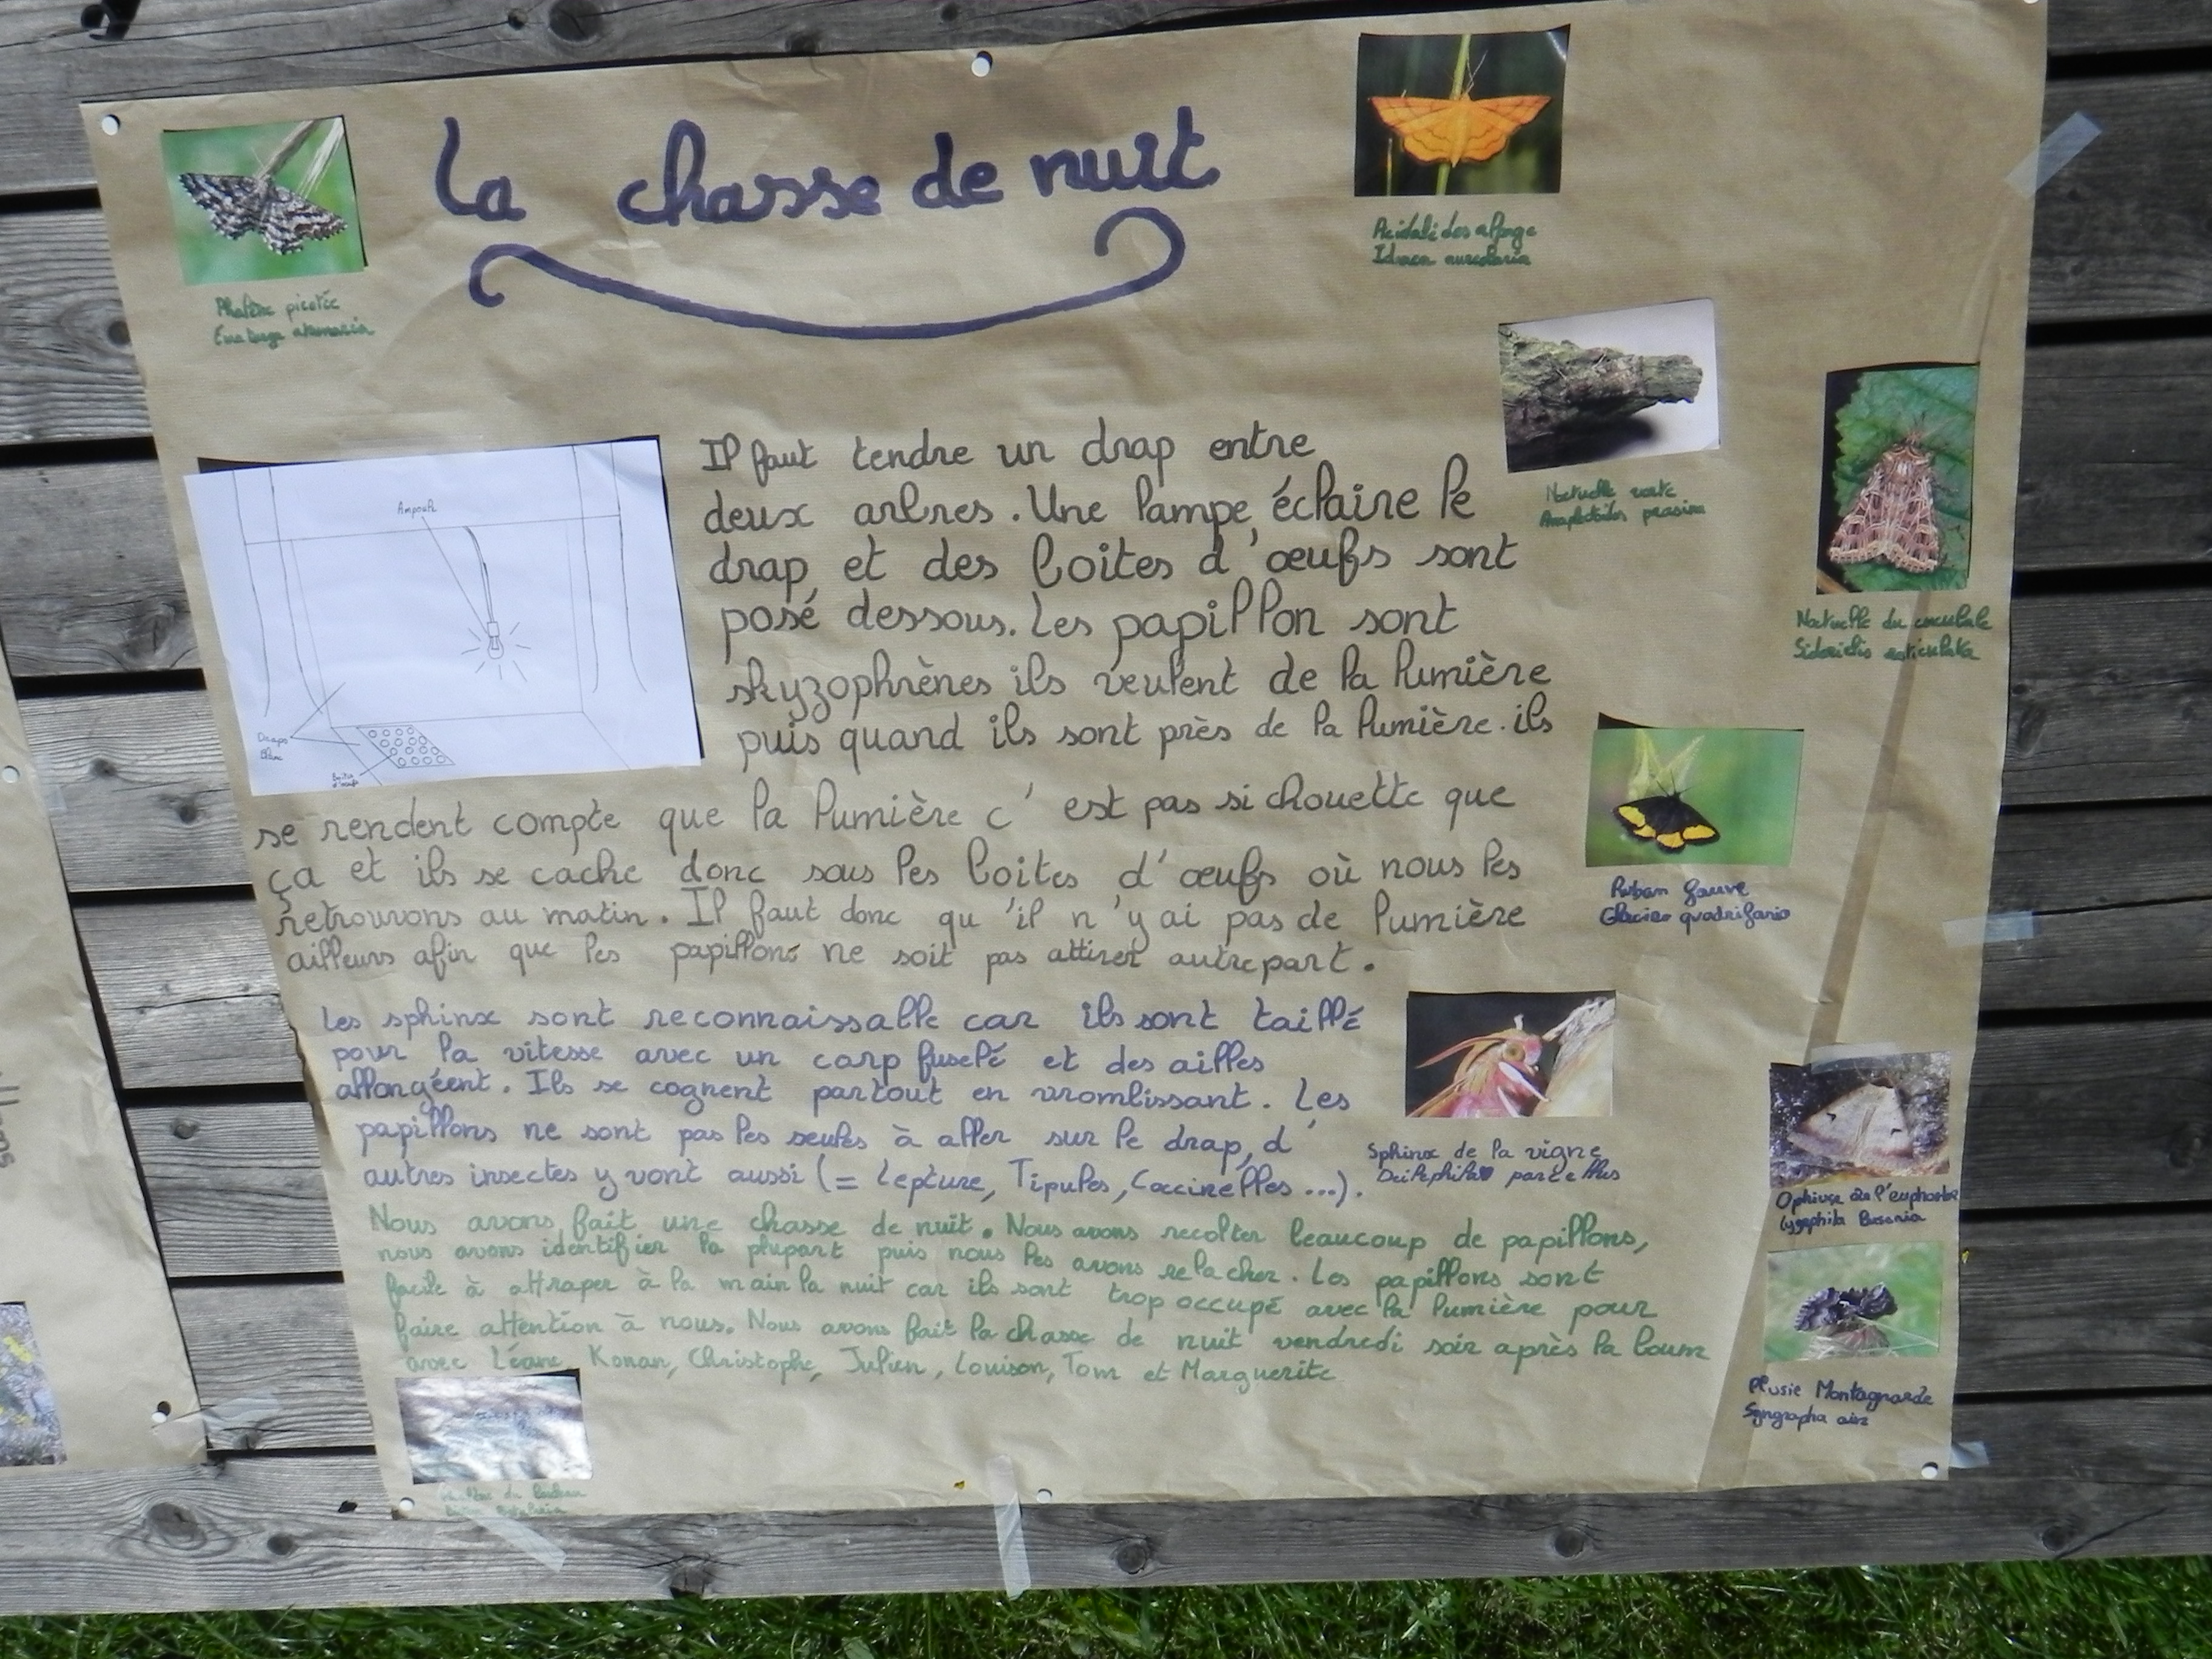 La chasse de nuit
Phalène picotée
Ematurga atomaria
Acidali des alpage
Idaea aureolaria
Noctuelle verte
Anaplectoides prasina
Noctuelle du cucubale
Sideridis reticulata
Ampoule
Draps
Blanc
Boites
d'oeufs
Il faut tendre un drap entre
deux arbres. Une lampe éclaire le
drap et des boites d'œufs sont
posé dessous. Les papillon sont
skyzophrènes ils veulent de la lumière
puis quand ils sont près de la lumière. ils
se rendent compte que la lumière c'est pas si chouette que
ça et ils se cache donc sous les boites d'œufs où nous les
retrouvons au matin. Il faut donc qu'il n'y ai pas de lumière
ailleurs afin que les papillons ne soit pas attirer autrepart.
Ruban fauve
quadrifaria
Les sphinx sont reconnaissable car ils sont taillé
pour la vitesse avec un corp fuselé et des ailles
allongéent. Ils se cognent partout en vrombissant. Les
papillons ne sont pas les seules à aller sur le drap, d'
autres insectes y vont aussi (= Lepture, Tipules, Coccinelles ...).
Sphinx de la vigne
Deilephila porcellus
Nous avons fait une chasse de nuit. Nous avons recolter beaucoup de papillons,
nous avons identifier la plupart puis nous les avons relacher. Les papillons sont
facile à attraper à la main la nuit car ils sont trop occupé avec la lumière pour
faire attention à nous. Nous avons fait la chasse de nuit vendredi soir après la boum
avec Léane, Konan, Christophe, Julien, Louison, Tom et Marguerite
Ophiuse de l'euphorbe
Lygephila
Plusie Montagnarde
Syngrapha ain